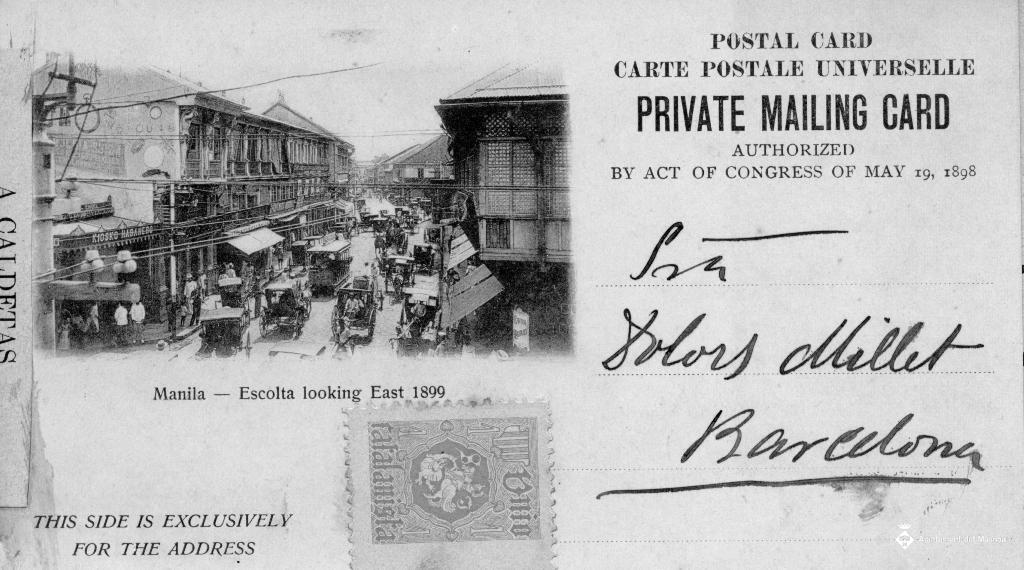 POSTAL CARD
CARTE POSTALE UNIVERSELLE
PRIVATE MAILING CARD
AUTHORIZED
BY ACT OF CONGRESS OF MAY 19, 1898
KIOSKO HABANERO
A CALDETAS
Manila — Escolta looking East 1899
Sra
Dolors Millet
Barcelona
Unió
catalanista
THIS SIDE IS EXCLUSIVELY
FOR THE ADDRESS
Ajuntament del Masnou